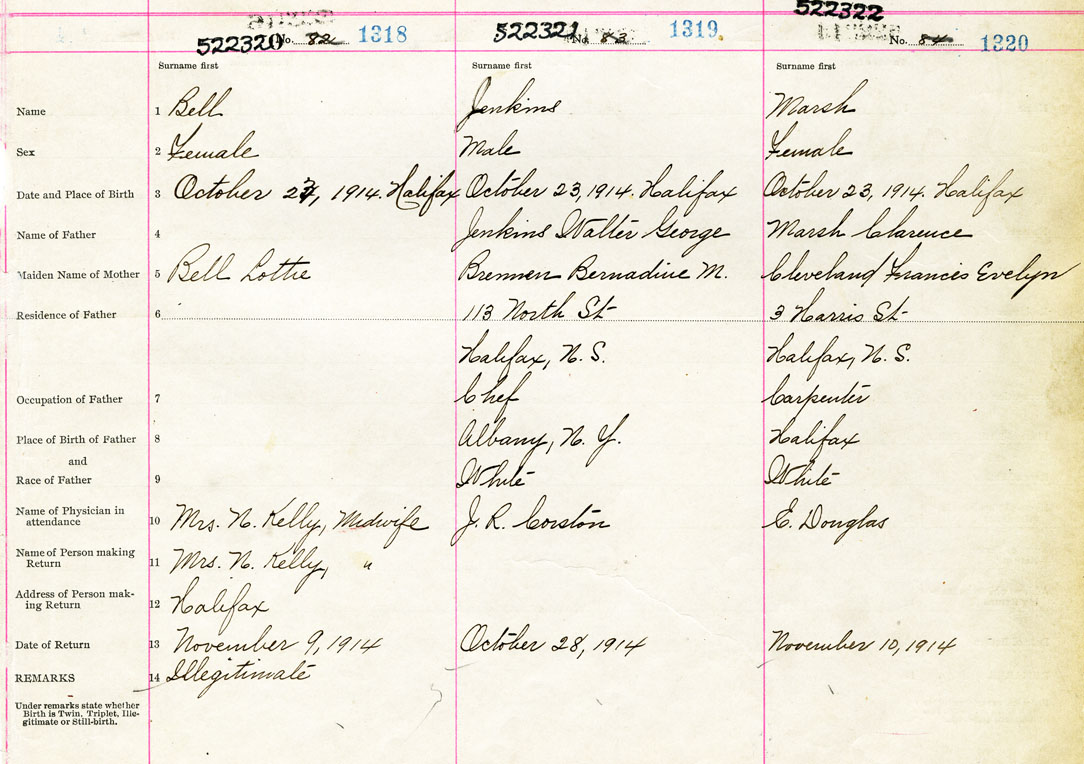 522320 No. 82 1318 522321 No. 83 1319. 522322 No. 84 1320
Surname first Surname first Surname first
Name 1 Bell Jenkins Marsh
Sex 2 Female Male Female
Date and Place of Birth 3 October 27, 1914. Halifax October 23, 1914. Halifax October 23, 1914. Halifax
Name of Father 4 Jenkins Walter George Marsh Clarence
Maiden Name of Mother 5 Bell Lottie Brennen Bernadine M. Cleveland Francis Evelyn
Residence of Father 6 113 North St 3 Harris St
Halifax, N. S. Halifax, N. S.
Occupation of Father 7 Chef Carpenter
Place of Birth of Father 8 Albany, N. Y. Halifax
and
Race of Father 9 White White
Name of Physician in
attendance 10 Mrs. N. Kelly, Midwife J. R. Corston E. Douglas
Name of Person making
Return 11 Mrs. N. Kelly, "
Address of Person mak-
ing Return 12 Halifax
Date of Return 13 November 9, 1914 October 28, 1914 November 10, 1914
REMARKS 14 Illegitimate
Under remarks state whether
Birth is Twin, Triplet, Ille-
gitimate or Still-birth.